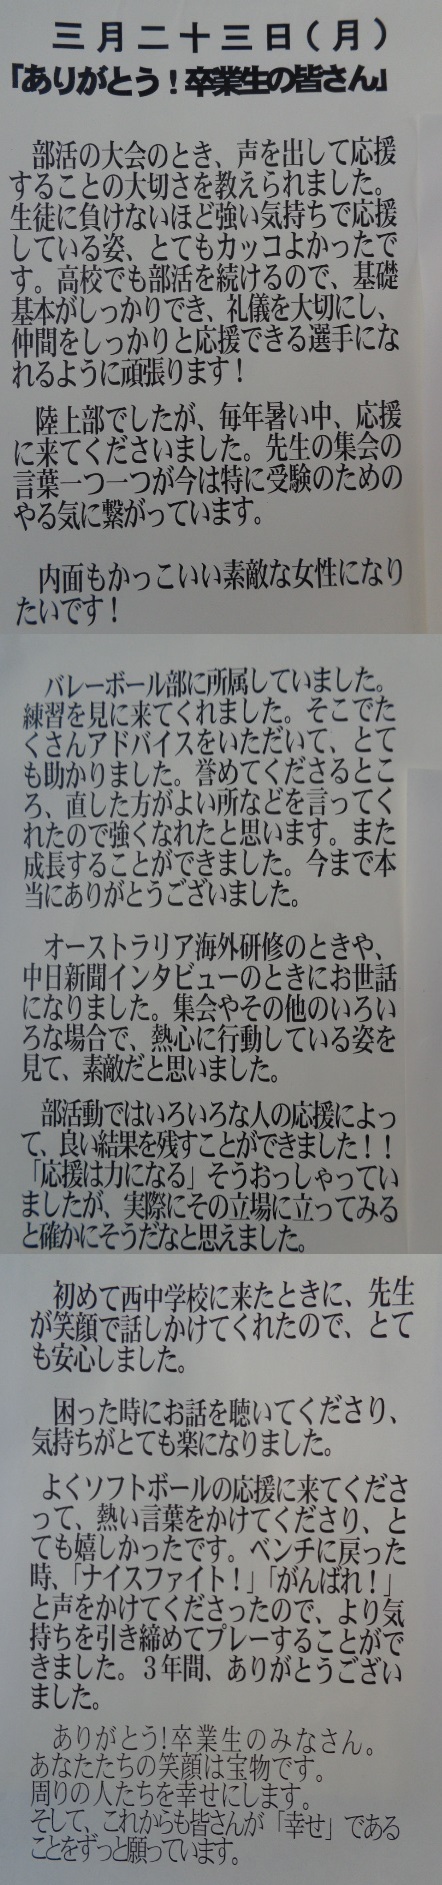 三月二十三日(月)
「ありがとう！卒業生の皆さん」
部活の大会のとき、声を出して応援
することの大切さを教えられました。
生徒に負けないほど強い気持ちで応援
している姿、とてもカッコよかったで
す。高校でも部活を続けるので、基礎
基本がしっかりでき、礼儀を大切にし、
仲間をしっかりと応援できる選手にな
れるように頑張ります！
陸上部でしたが、毎年暑い中、応援
に来てくださいました。先生の集会の
言葉一つ一つが今は特に受験のための
やる気に繋がっています。
内面もかっこいい素敵な女性になり
たいです！
バレーボール部に所属していました。
練習を見に来てくれました。そこでた
くさんアドバイスをいただいて、とて
も助かりました。誉めてくださるとこ
ろ、直した方がよい所などを言ってく
れたので強くなれたと思います。また
成長することができました。今まで本
当にありがとうございました。
オーストラリア海外研修のときや、
中日新聞インタビューのときにお世話
になりました。集会やその他のいろい
ろな場合で、熱心に行動している姿を
見て、素敵だと思いました。
部活動ではいろいろな人の応援によっ
て、良い結果を残すことができました！！
「応援は力になる」そうおっしゃってい
ましたが、実際にその立場に立ってみる
と確かにそうだなと思えました。
初めて西中学校に来たときに、先生
が笑顔で話しかけてくれたので、とて
も安心しました。
困った時にお話を聴いてくださり、
気持ちがとても楽になりました。
よくソフトボールの応援に来てくださ
って、熱い言葉をかけてくださり、と
ても嬉しかったです。ベンチに戻った
時、「ナイスファイト！」「がんばれ！」
と声をかけてくださったので、より気
持ちを引き締めてプレーすることがで
きました。３年間、ありがとうござい
ました。
ありがとう！卒業生のみなさん。
あなたたちの笑顔は宝物です。
周りの人たちを幸せにします。
そして、これからも皆さんが「幸せ」である
ことをずっと願っています。